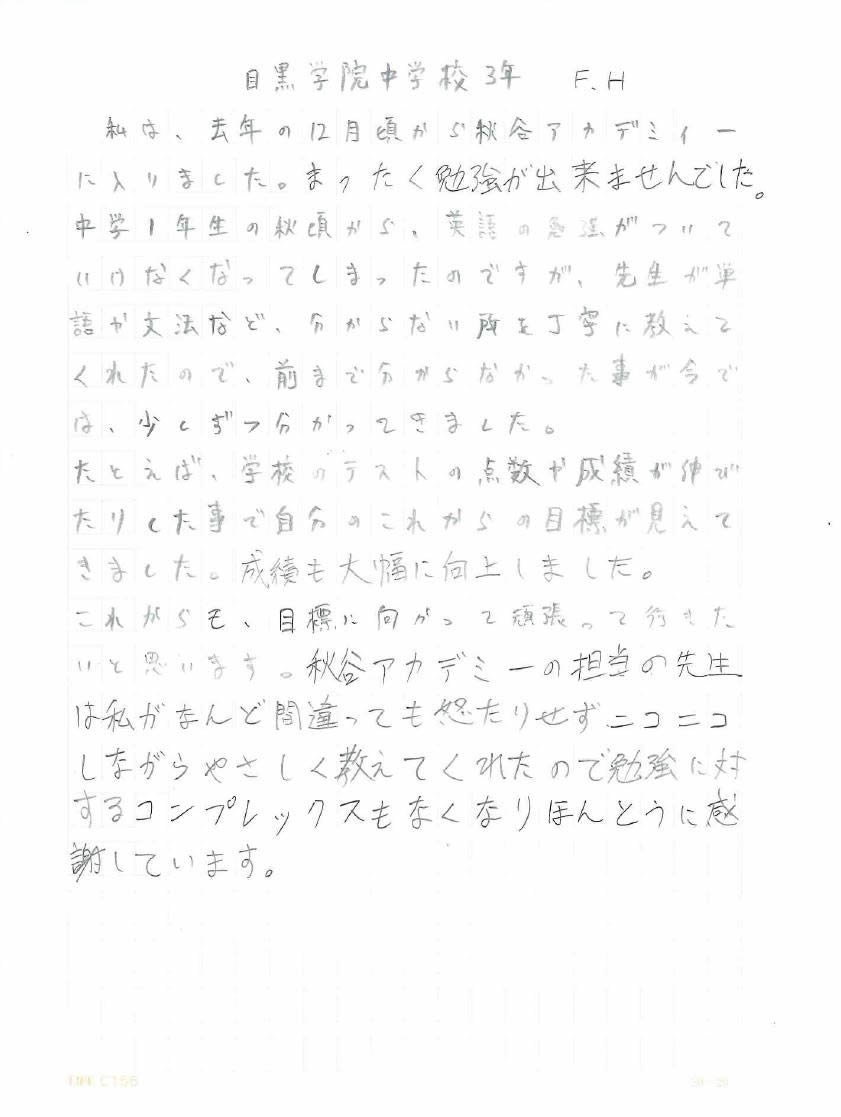 目黒学院中学校3年 F.H
私は、去年の12月頃から秋谷アカデミィー
に入りました。まったく勉強が出来ませんでした。
中学1年生の秋頃から、英語の勉強がついて
いけなくなってしまったのですが、先生が単
語や文法など、分からない所を丁寧に教えて
くれたので、前まで分からなかった事が今で
は、少しずつ分かってきました。
たとえば、学校のテストの点数や成績が伸び
たりした事で自分のこれからの目標が見えて
きました。成績も大幅に向上しました。
これからも、目標に向かって頑張って行きた
いと思います。秋谷アカデミーの担当の先生
は私がなんど間違っても怒たりせずニコニコ
しながらやさしく教えてくれたので勉強に対
するコンプレックスもなくなりほんとうに感
謝しています。
LIFE C155
20×20